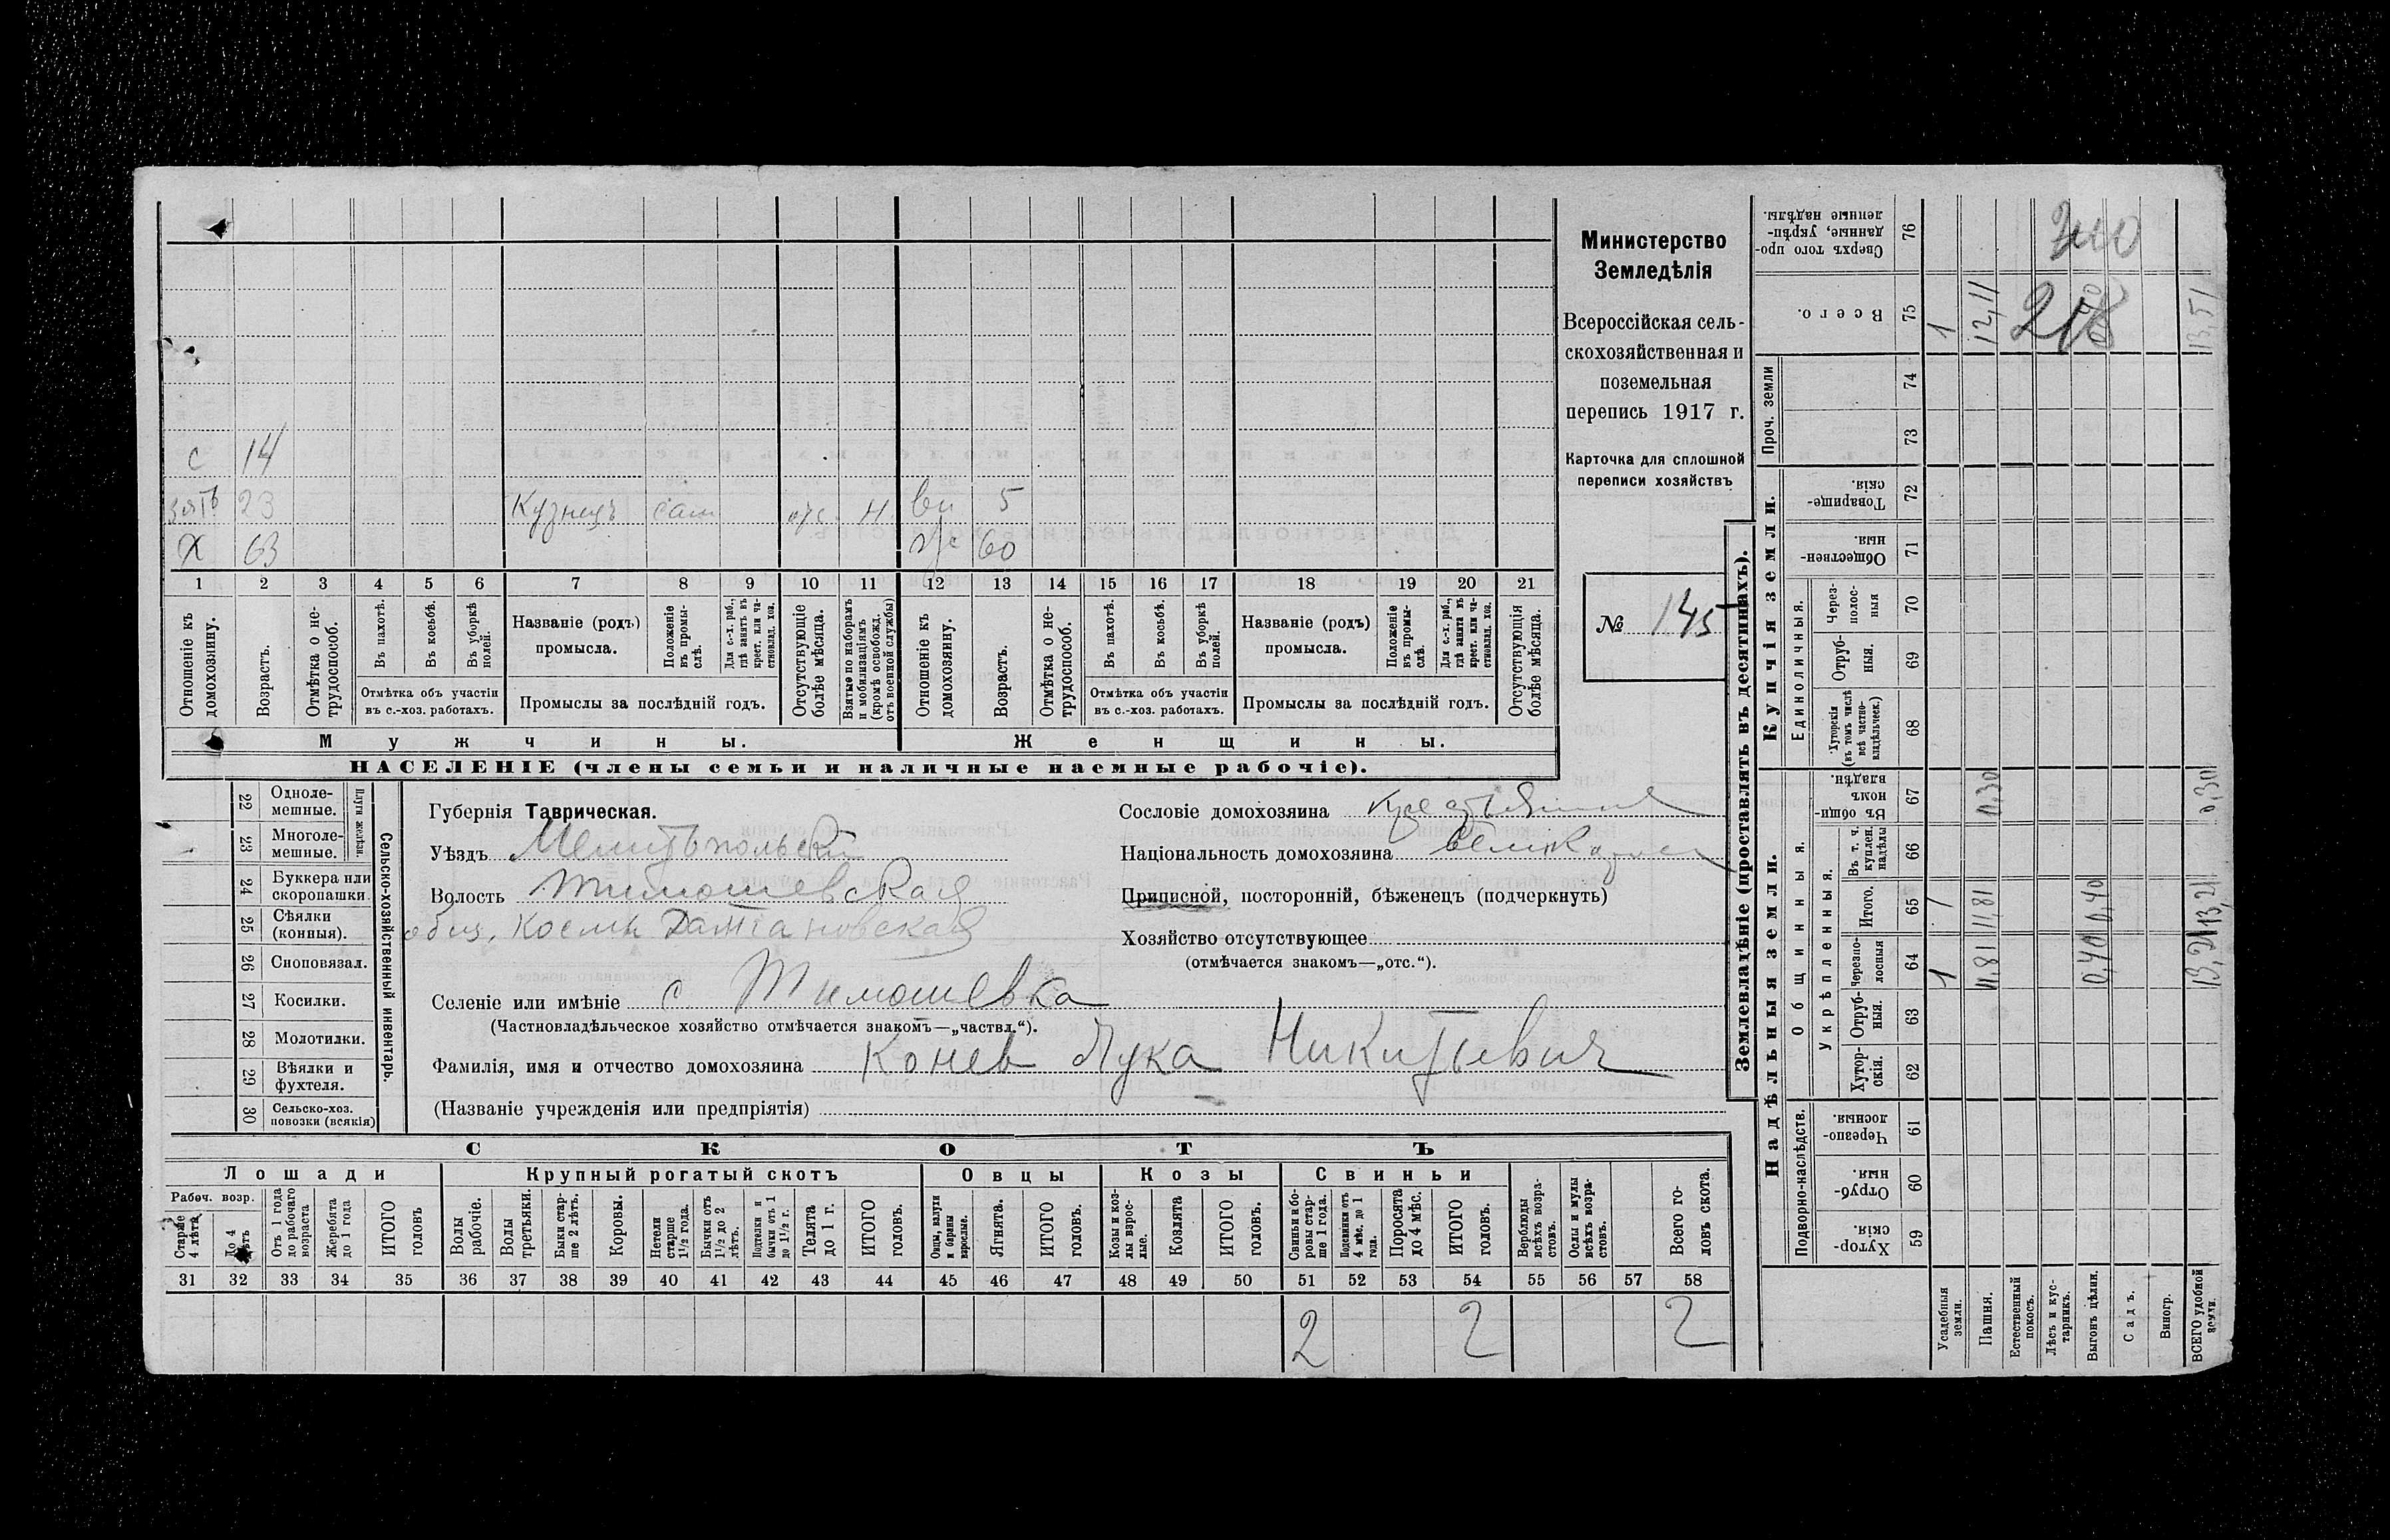 Министерство
Земледѣлія
Всероссійская сель-
скохозяйственная и
поземельная
перепись 1917 г.
Карточка для сплошной
переписи хозяйствъ
№ 145
с 14
зять 23 Кузнецъ сам отс. Н. вн 5
Х 63 60
1 2 3 4 5 6 7 8 9 10 11 12 13 14 15 16 17 18 19 20 21
Отношеніе къ домохозяину.
Возрастъ.
Отмѣтка о не-трудоспособ.
Въ пахотѣ.
Въ косьбѣ.
Въ уборкѣ полей.
Названіе (родъ) промысла.
Положеніе въ промы-слѣ.
Для с.-х. раб., гдѣ занятъ въ крест. или ча-стновлад. хоз.
Отсутствующіе болѣе мѣсяца.
Взятые по наборамъ и мобилизаціямъ (кромѣ освобожд. отъ военной службы)
Отношеніе къ домохозяину.
Возрастъ.
Отмѣтка о не-трудоспособ.
Въ пахотѣ.
Въ косьбѣ.
Въ уборкѣ полей.
Названіе (родъ) промысла.
Положеніе въ промы-слѣ.
Для с.-х. раб., гдѣ занята въ крест. или ча-стновлад. хоз.
Отсутствующія болѣе мѣсяца.
Отмѣтка объ участіи въ с.-хоз. работахъ.
Промыслы за послѣдній годъ.
Отмѣтка объ участіи въ с.-хоз. работахъ.
Промыслы за послѣдній годъ.
Мужчины. Женщины.
НАСЕЛЕНІЕ (члены семьи и наличные наемные рабочіе).
22 Одноле-мешные.
23 Многоле-мешные.
Плуги желѣзн.
24 Буккера или скоропашки
25 Сѣялки (конныя).
26 Сноповязал.
27 Косилки.
28 Молотилки.
29 Вѣялки и фухтеля.
30 Сельско-хоз. повозки (всякія)
Сельско-хозяйственный инвентарь.
Губернія Таврическая.
Уѣздъ Мелитопольскій
Волость Тимошевская
общ. Косьми Даміановская
Селеніе или имѣніе с Тимошевка
(Частновладѣльческое хозяйство отмѣчается знакомъ—„частвл.“).
Фамилія, имя и отчество домохозяина Конев Лука Никитьевич
(Названіе учрежденія или предпріятія)
Сословіе домохозяина крестьянин
Національность домохозяина
Приписной, посторонній, бѣженец (подчеркнуть)
Хозяйство отсутствующее
(отмѣчается знакомъ—„отс.“).
СКОТЪ
Лошади Крупный рогатый скотъ Овцы Козы Свиньи
Рабоч. возр.
Старше 4 лѣтъ
До 4 лѣтъ
Отъ 1 года до рабочаго возраста
Жеребята до 1 года
ИТОГО головъ
Волы рабочіе.
Волы третьяки.
Быки стар-ше 2 лѣтъ.
Коровы.
Нетели старше 1½ года.
Бычки отъ 1½ до 2 лѣтъ.
Подтелки и бычки отъ 1 до 1½ г.
Телята до 1 г.
ИТОГО головъ.
Овцы, валухи и бараны взрослые.
Ягнята.
ИТОГО головъ.
Козы и коз-лы взрос-лые.
Козлята
ИТОГО головъ.
Свиньи и бо-ровы стар-ше 1 года.
Подсвинки отъ 4 мѣс. до 1 года.
Поросята до 4 мѣс.
ИТОГО головъ.
Верблюды всѣхъ возра-стовъ.
Ослы и мулы всѣхъ возра-стовъ.
Всего го-ловъ скота.
31 32 33 34 35 36 37 38 39 40 41 42 43 44 45 46 47 48 49 50 51 52 53 54 55 56 57 58
2 2 2
Землевладѣніе (проставлять въ десятинахъ).
Надѣльныя земли. Купчія земли. Проч. земли
Подворно-наслѣдств. Общинныя. Единоличныя.
Укрѣпленныя.
Хутор-скія. 59
Отруб-ныя. 60
Черезпо-лосныя 61
Хутор-скія. 62
Отруб-ныя. 63
Черезпо-лосныя 64
Итого. 65
Въ т. ч. куплен. надѣлы 66
Въ общин-номъ владѣн. 67
Хуторскія (въ томъ числѣ всѣ частно-владѣльческ.) 68
Отруб-ныя. 69
Через-полос-ныя 70
Обществен-ныя. 71
Товарище-скія. 72
73
74
Всего. 75
Сверхъ того про-данные, укрѣп-ленные надѣлы. 76
Усадебныя земли. 1 1 1
Пашня. 11,81 11,81 0,30 12,11
Естественный покосъ.
Лѣсъ и кус-тарникъ.
Выгонъ цѣлин. 0,40 0,40
Садъ.
Виногр.
ВСЕГО удобной земли. 13,21 13,21 0,30 13,51
218